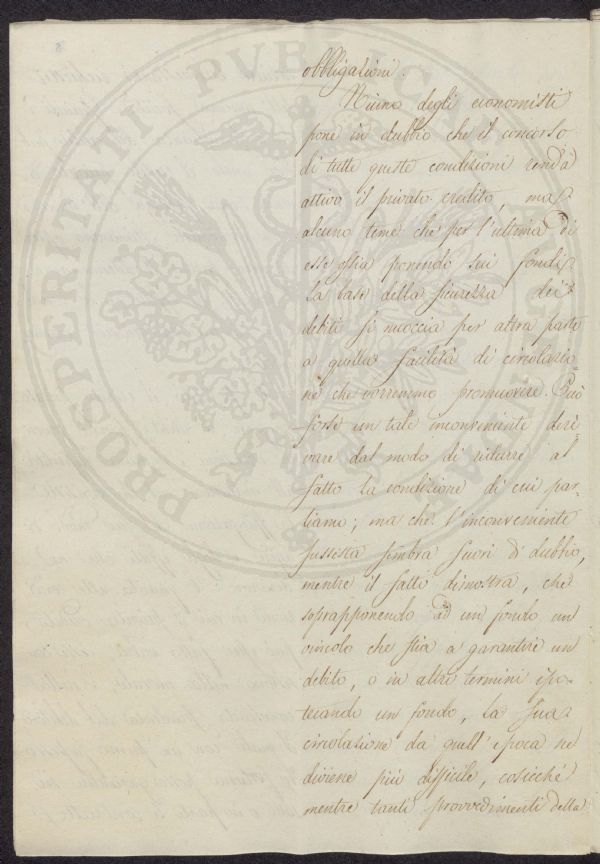 PROSPERITATI PUBLICAE AUG
obbligazioni.
Niuno degli economisti
pone in dubbio che il concorso
di tutte queste condizioni renda
attivo il privato credito, ma
alcuno teme che per l'ultima di
esse ossia ponendo sui fondi
la base della sicurezza dei
debiti si nuoccia per altra parte
a quella facilità di circolazio=
ne che vorremmo promuovere. Può
forse un tale inconveniente deri=
vare dal modo di ridurre al
fatto la condizione di cui par=
liamo; ma che l'inconveniente
sussista sembra fuori di dubbio,
mentre il fatto dimostra, che
soprapponendo ad un fondo un
vincolo che stia a garantire un
debito, o in altri termini ipo=
tecando un fondo, la sua
circolazione da quell'epoca ne
diviene più difficile, cosicché
mentre tanti provvedimenti della